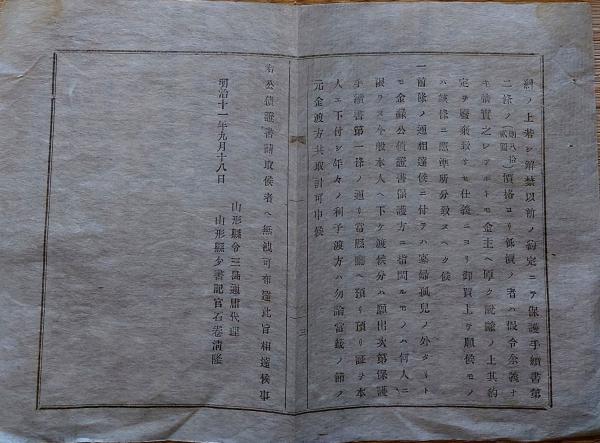 糾ノ上若シ解禁以前ノ約定ニテ保護手續書第
二條ノ(則八拾貳圓)價格ヨリ低減ノ者ハ假令余義ナ
キ情實之レアルトモ金主ヘ厚ク説諭ノ上其約
定ヲ廢棄致サセ仕義ニヨリ御買上ケ願候モノ
ハ該條ニ憑準所分致スヘク候
一前條ノ通相達候ニ付テハ寡婦孤兒ノ外タリト
モ金祿公債證書保護方ニ當聞ルモノハ何人ニ
限ラス今般本人ヘ下ケ渡候分ハ願出次第保護
手續書第一條ノ通リ當縣廳ヘ預リ預リ証ヲ本
人エ下付シ年々ノ利子渡方ハ勿論當籤ノ節ノ
元金渡方共取計可申候
三
右公債證書請取候者ヘ無洩可布達此旨相達候事
明治十一年九月十八日
山形縣令三島通庸代理
山形縣少書記官石卷清隆